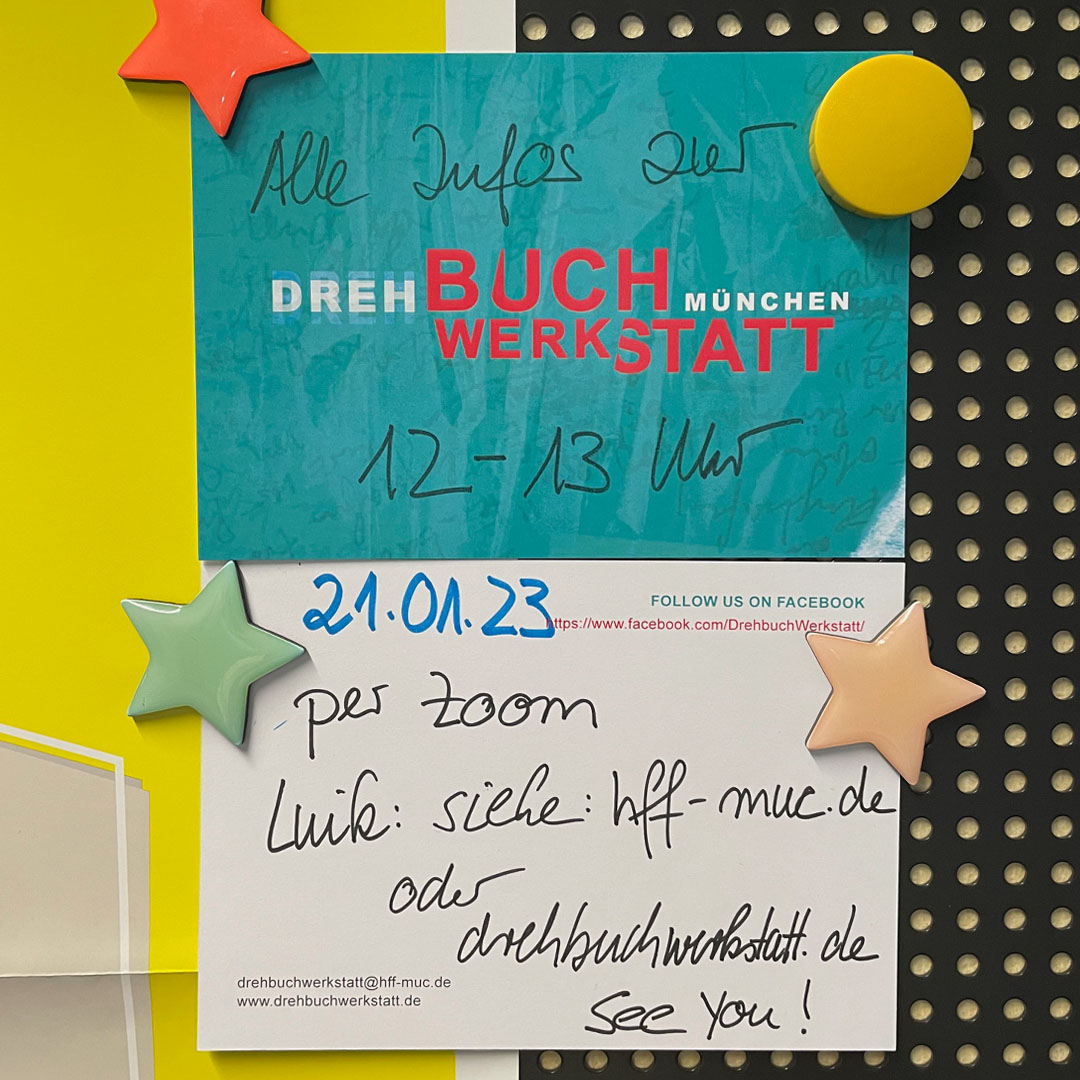 Alle Infos zur
DREHBUCH MÜNCHEN
WERKSTATT
12-13 Uhr
21.01.23
FOLLOW US ON FACEBOOK
https://www.facebook.com/DrehbuchWerkstatt/
per zoom
Link: siehe: hff-muc.de
oder
drehbuchwerkstatt.de
drehbuchwerkstatt@hff-muc.de
www.drehbuchwerkstatt.de
See you!